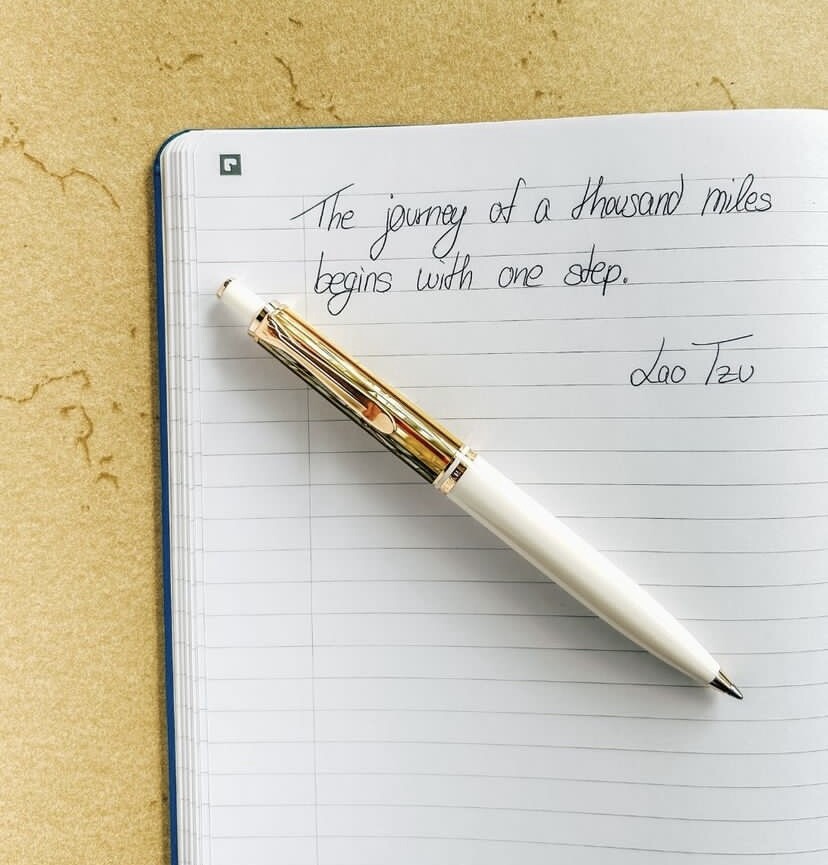 The journey of a thousand miles
begins with one step.
Lao Tzu